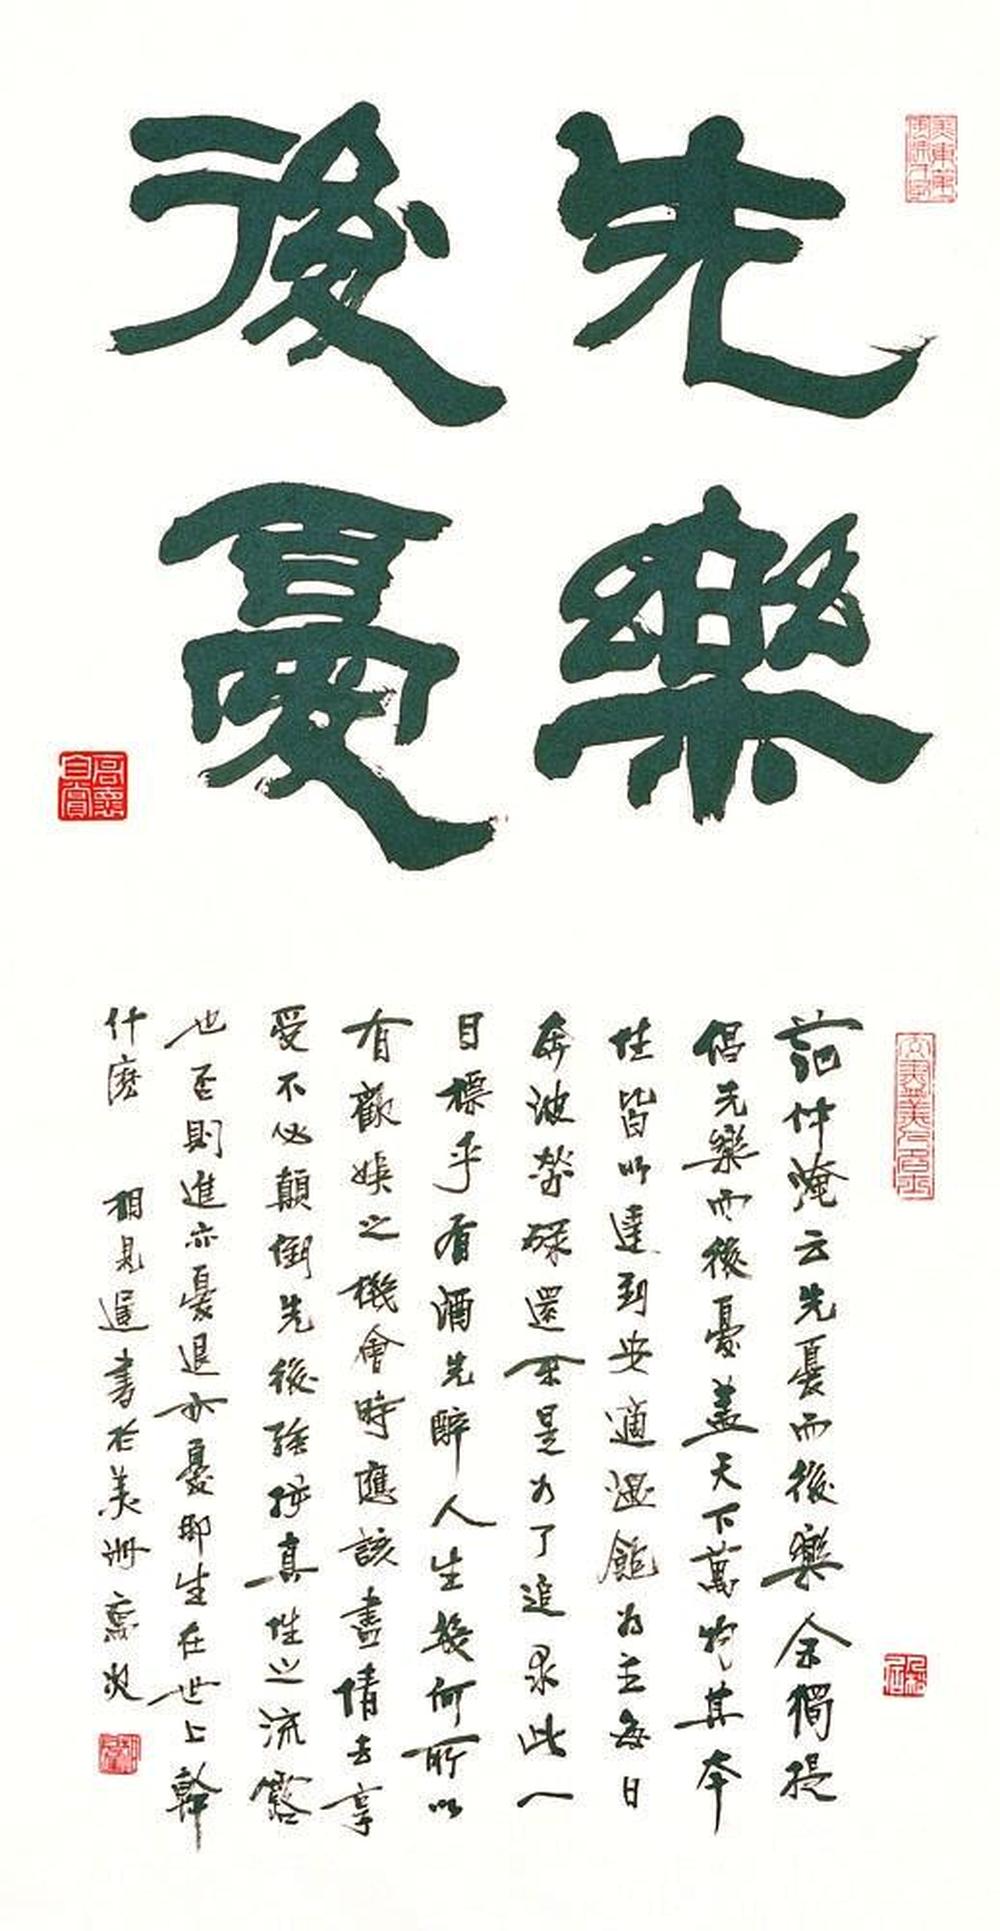 先樂
後憂
范仲淹云先憂而後樂余獨提
倡先樂而後憂蓋天下萬物其本
性皆以達到安適溫飽為主每日
奔波勞碌還不是為了追求此一
目標乎有酒先醉人生幾何所以
有歡娛之機會時應該盡情去享
受不必顛倒先後強抑真性之流露
也否則進亦憂退亦憂那生在世上幹
什麼 相見遲書於美洲
高懷自賞